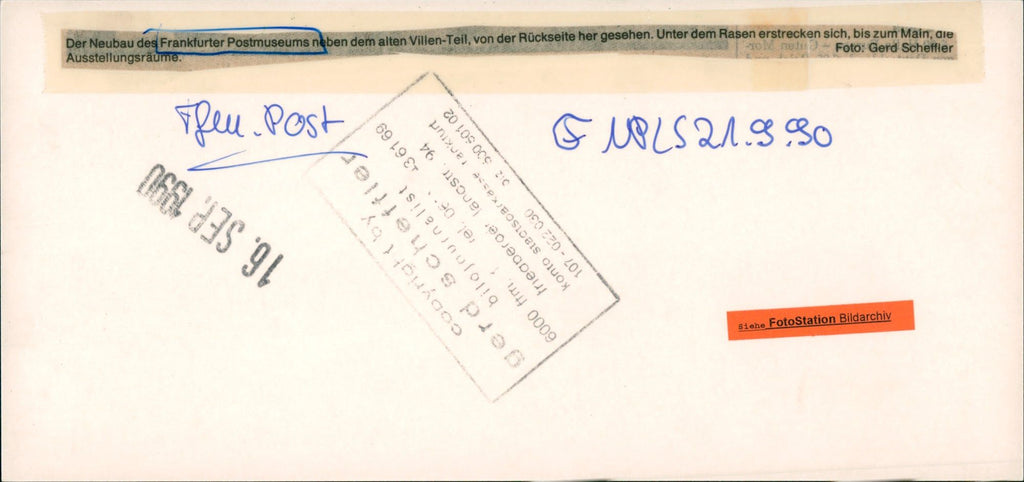 Der Neubau des Frankfurter Postmuseums neben dem alten Villen-Teil, von der Rückseite her gesehen. Unter dem Rasen erstrecken sich, bis zum Main, die
Ausstellungsräume.
Foto: Gerd Scheffler
Post
21.9.90
16. SEP. 1990
copyright by
gerd scheffler
6000 ffm. 1
friedberger
konto stadtsparkasse frankfurt
107 - 022 030
Siehe FotoStation Bildarchiv